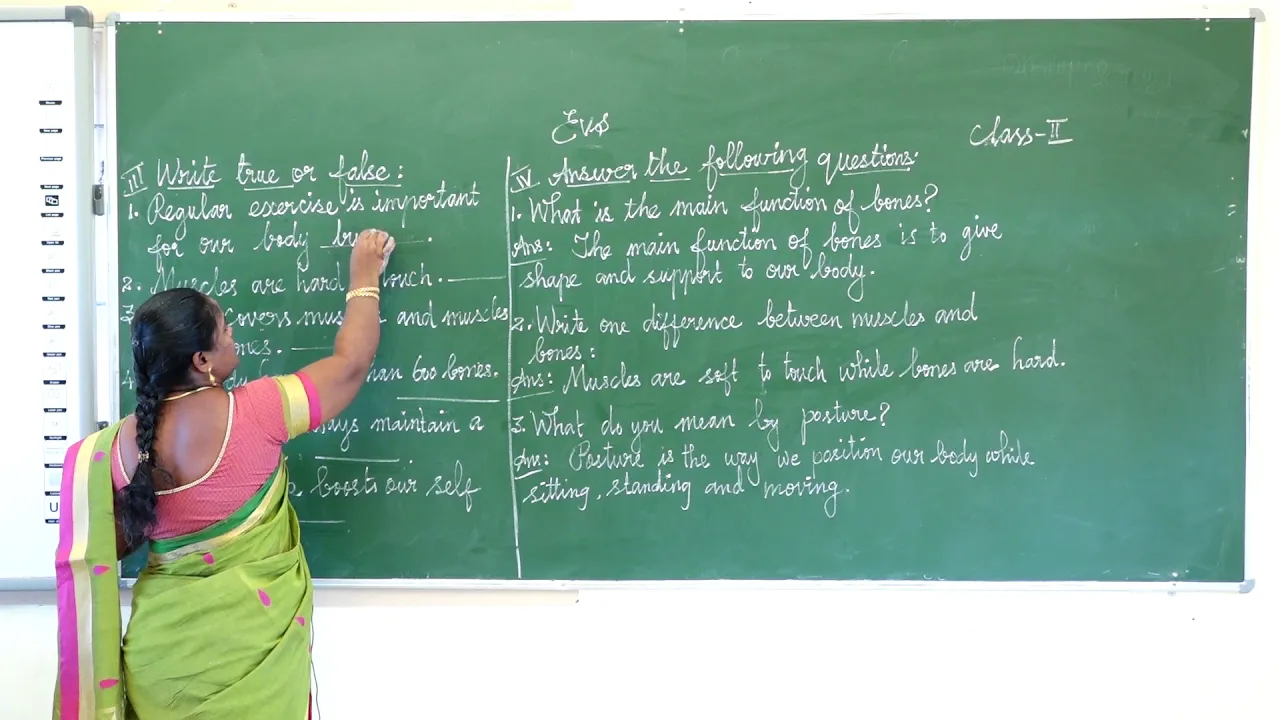 EVS
Class-II
III Write true or false:
1. Regular exercise is important
for our body tru
2. Muscles are hard touch.
3. covers and muscles
ones.
4. 600 bones.
maintain a
boosts our self
IV Answer the following questions:
1. What is the main function of bones?
Ans: The main function of bones is to give
shape and support to our body.
2. Write one difference between muscles and
bones:
Ans: Muscles are soft to touch while bones are hard.
3. What do you mean by posture?
Ans: Posture is the way we position our body while
sitting, standing and moving.